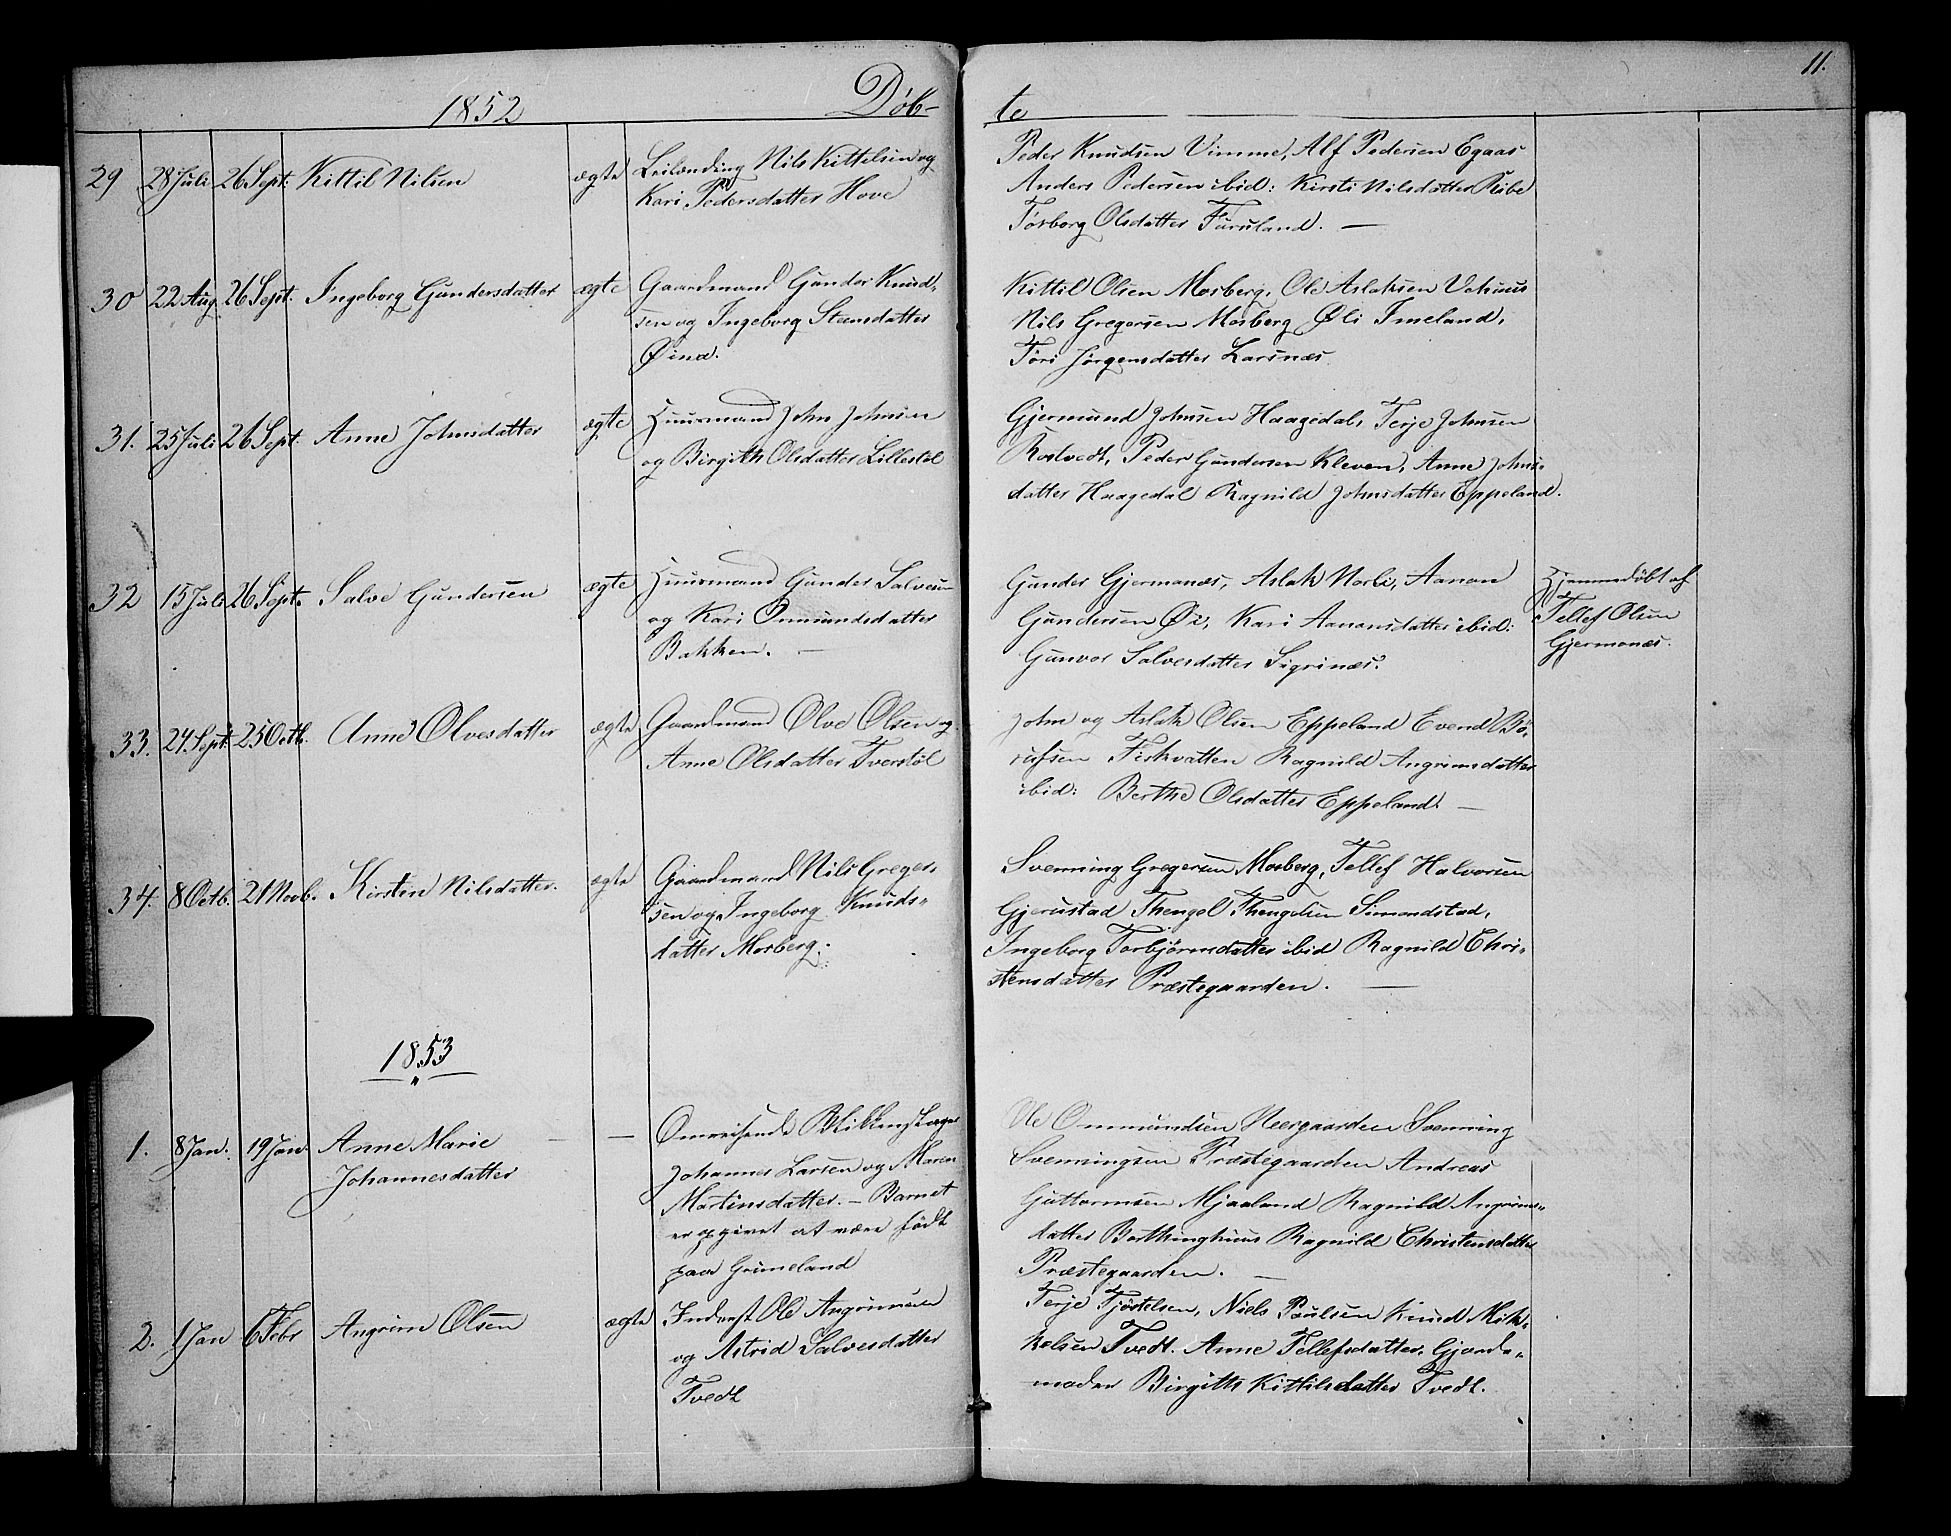 11.
1852 Døb- te
29 28 Juli 26 Sept. Kittil Nilsen ægte Leilænding Nils Kittelsen og
Kari Pedersdatter Hove
Peder Knudsen Vimme, Alf Pedersen Egaas
Anders Pedersen ibid: Kirsti Nilsdatter Ribe
Torborg Olsdatter Furuland. —
30 22 Aug. 26 Sept. Ingeborg Gundersdatter ægte Gaardmand Gunder Knud-
sen og Ingeborg Steensdatter
Øina.
Kittil Olsen Mosberg, Ole Aslaksen Vehuus
Nils Gregersen Mosberg Øli Imeland,
Tori Jørgensdatter Larsnæs
31. 25 Juli 26 Sept. Anne Johnsdatter ægte Huusmand John Johnsen
og Birgith Olsdatter Lillestøl
Gjermund Johnsen Haagedal, Terje Johnsen
Rostvedt, Peder Gundersen Kleven, Anne Johns-
datter Haagedal Ragnild Johnsdatter Eppeland.
32 15 Juli 26 Sept. Salve Gundersen ægte Huusmand Gunder Salvesen
og Kari Omundsdatter
Bakken. —
Gunder Gjermonæs, Aslak Norli, Aanon
Gundersen Øi, Kari Aanonsdatter ibid:
Gunvor Salvesdatter Sigrinæs.
Hjemmedøbt af
Tellef Olsen
Gjermonæs.
33. 24 Sept. 25 Octb. Anne Olvesdatter ægte Gaardmand Olve Olsen og
Anne Olsdatter Tverstøl
John og Aslak Olsen Eppeland Evend Bø-
rufsen Fiskvatten Ragnild Angrimsdatter
ibid: Berthe Olsdatter Eppeland. —
34. 8 Octb. 21 Novb. Kirsten Nilsdatter. ægte Gaardmand Nils Greger-
sen og Ingeborg Knuds-
datter Mosberg.
Svenning Gregersen Mosberg, Tellef Halvorsen
Gjerustad Thengel Thengelsen Simonstad,
Ingeborg Torbjörnsdatter ibid Ragnild Chri-
stensdatter Præstegaarden. —
1853
1. 8 Jan. 19 Jan. Anne Marie — —
Johannesdatter
Omreisende Blikkenslager
Johannes Larsen og Maren
Martinsdatter. — Barnet
er opgivet at være født
paa Grimeland
Ole Ommundsen Neergaarden Svenning
Svenningsen Præstegaarden Andreas
Guttormsen Mjaaland Ragnild Angrims-
datter Ragnild Christensdatter
Præstegaarden. —
2. 1 Jan 6 Febr Angrim Olsen ægte Inderst Ole Angrimsen
og Astrid Salvesdatter
Tvedt
Terje Tjøstelsen, Niels Paulsen Knud Mik-
kelsen Tvedt. Anne Tellefsdatter, Gjorde-
moder Birgith Kittilsdatter Tvedt.